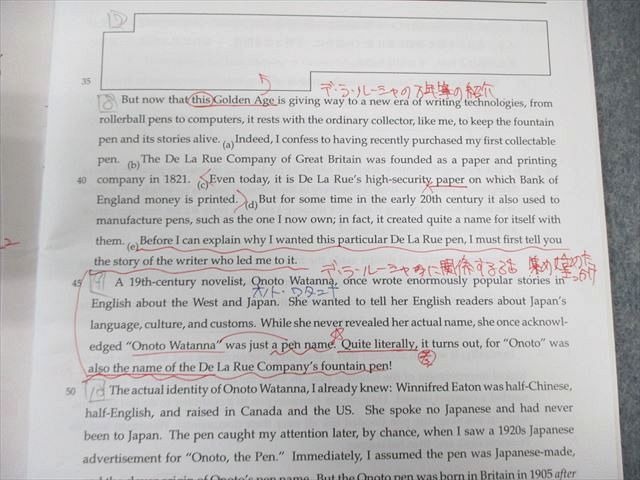 35
デ・ラ・ルーシャの万年筆の紹介
8 But now that this Golden Age is giving way to a new era of writing technologies, from
rollerball pens to computers, it rests with the ordinary collector, like me, to keep the fountain
pen and its stories alive. (a)Indeed, I confess to having recently purchased my first collectable
pen. (b)The De La Rue Company of Great Britain was founded as a paper and printing
40 company in 1821. (c)Even today, it is De La Rue's high-security paper on which Bank of
England money is printed. (d)But for some time in the early 20th century it also used to
manufacture pens, such as the one I now own; in fact, it created quite a name for itself with
them. (e)Before I can explain why I wanted this particular De La Rue pen, I must first tell you
the story of the writer who led me to it.
45 9 A 19th-century novelist, Onoto Watanna, once wrote enormously popular stories in
オノト・ワタンナ
English about the West and Japan. She wanted to tell her English readers about Japan's
language, culture, and customs. While she never revealed her actual name, she once acknowl-
edged "Onoto Watanna" was just a pen name. Quite literally, it turns out, for "Onoto" was
also the name of the De La Rue Company's fountain pen!
50 10 The actual identity of Onoto Watanna, I already knew: Winnifred Eaton was half-Chinese,
half-English, and raised in Canada and the US. She spoke no Japanese and had never
been to Japan. The pen caught my attention later, by chance, when I saw a 1920s Japanese
advertisement for "Onoto, the Pen." Immediately, I assumed the pen was Japanese-made,
origin of Onoto's pen name. But the Onoto pen was born in Britain in 1905 after